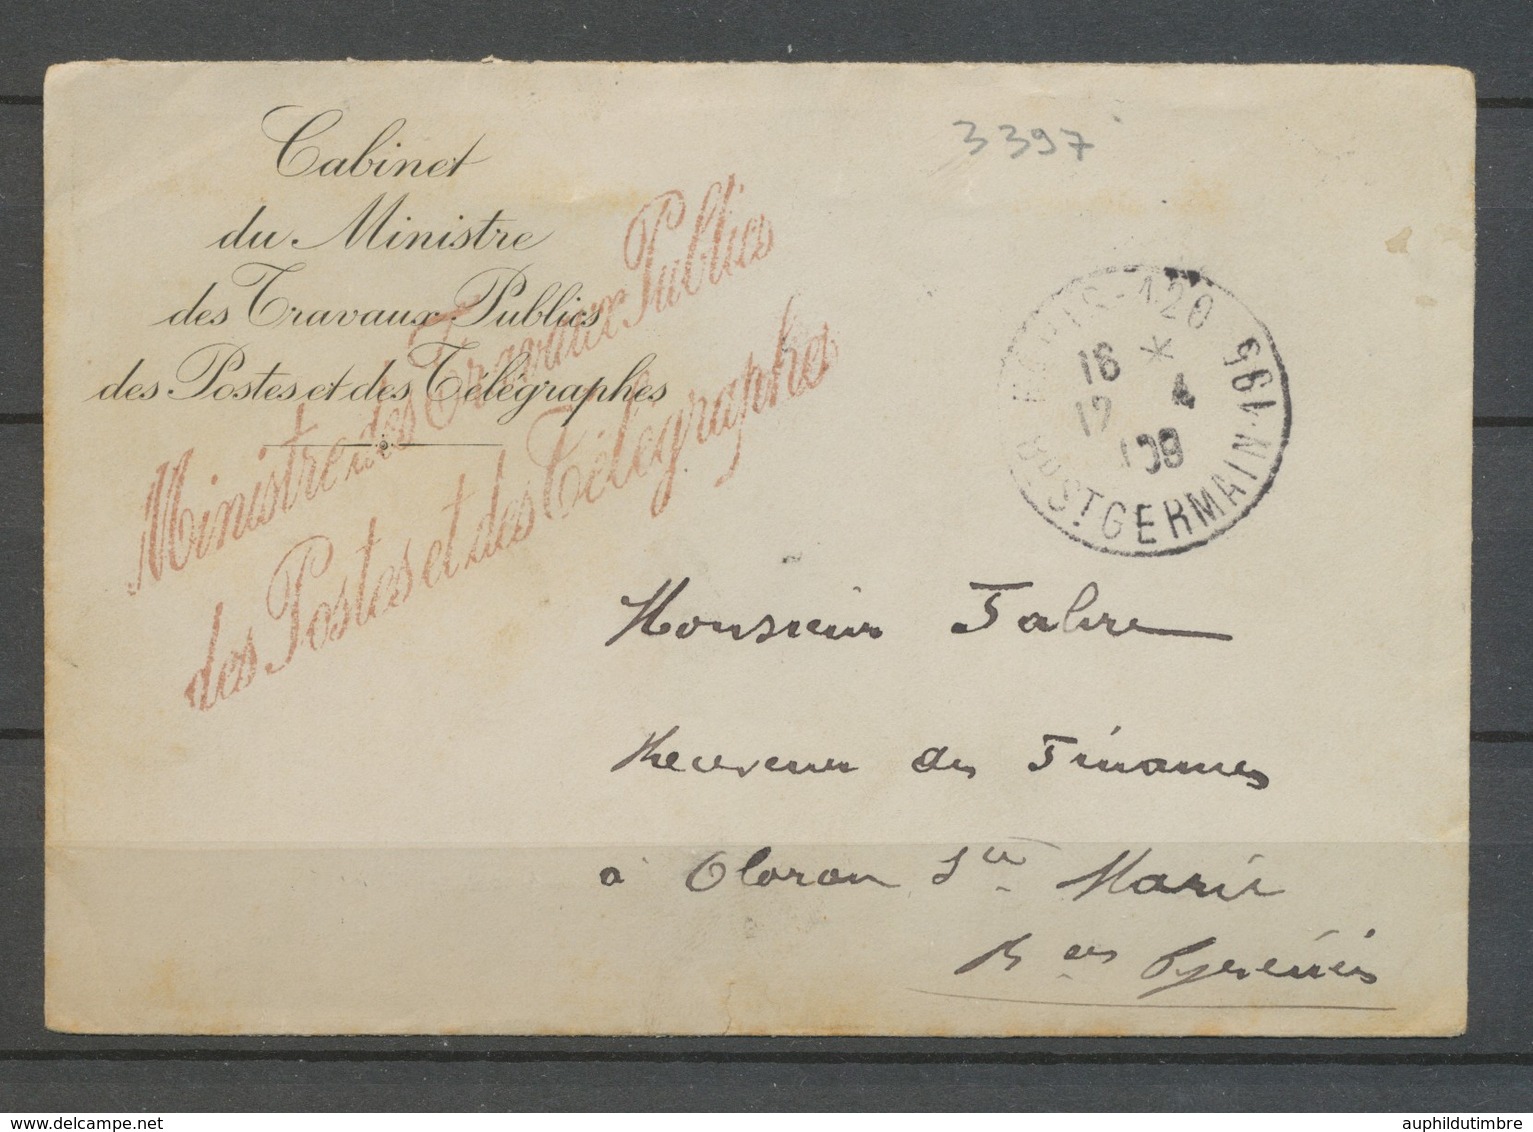 Cabinet
du Ministre
des Travaux Publics
des Postes et des Télégraphes
3397
Ministre des Travaux Publics
des Postes et des Télégraphes
PARIS-120
BD ST GERMAIN-195
16 *
17 4
08
Monsieur Fabre
Receveur des Finances
à Oloron Ste Marie
Bses Pyrénées
auphildutimbre.com